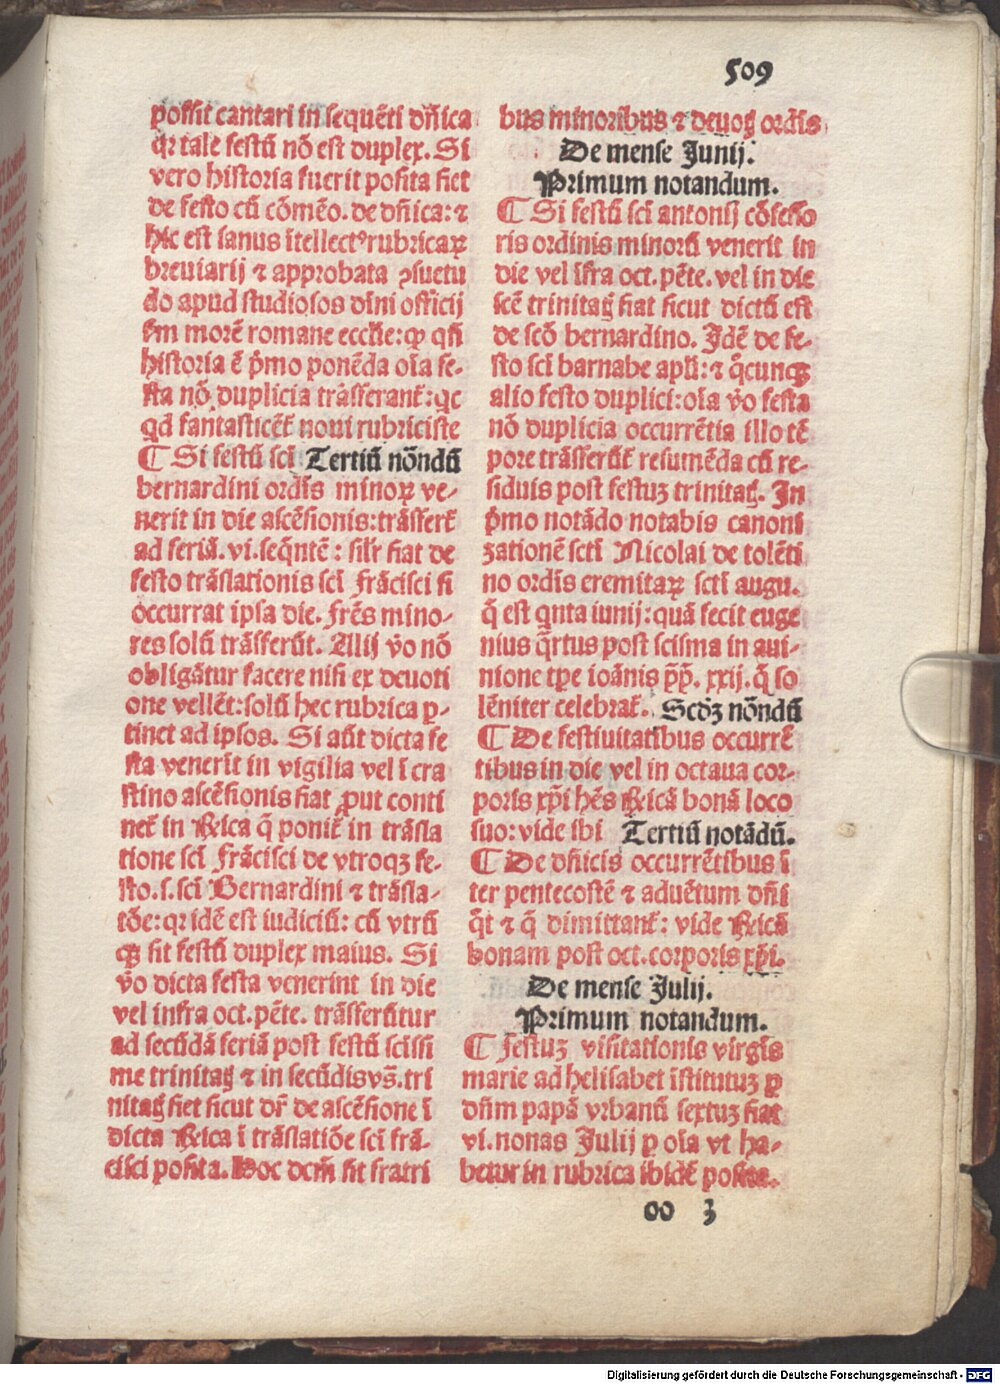 509
possit cantari in sequẽti dñica
qꝛ tale festũ nõ est duplex. Si
vero historia fuerit posita fiet
de festo cũ cõmẽo. de dñica: ⁊
hic est sanus ĩtellectꝰ rubricaꝝ
breuiarij ⁊ approbata ꝯsuetu
do apud studiosos diñi officij
ẜm morẽ romane ecclie: ꝙ qñ
historia ẽ p̃mo ponẽda oĩa fe-
sta nõ duplicia trãsferant̃: qc
qd fantasticẽt̃ noui rubriciste
¶ Si festũ sci Tertiũ nõndũ
bernardini ordĩs minoꝝ ve-
nerit in die ascẽsionis: trãsfert̃
ad feriã. vi. seq̃ntẽ: silr fiat de
festo trãslationis sci Frãcisci si
occurrat ipsa die. frẽs mino-
res solũ trãsferũt. Alij v̊o nõ
obligãtur facere nisi ex deuoti
one vellẽt: solũ hec rubrica ꝑ-
tinet ad ipsos. Si aũt dicta fe
sta venerĩt in vigilia vel ĩ cra
stino ascẽsionis fiat ꝓut conti
net̃ in Rica q̃ ponit̃ in trãsla
tione sci Frãcisci de vtroqꝫ fe-
sto. s. sci Bernardini ⁊ trãsla-
tõe: qꝛ idẽ est iudiciũ: cũ vtrũ
qꝫ sit festũ duplex maius. Si
v̊o dicta festa venerint in die
vel infra oct. pẽte. trãsferũtur
ad secũdã feriã post festũ scissi
me trinitatꝭ ⁊ in secũdis vs̃. tri
nitatꝭ fiet sicut dr̃ de ascẽsione ĩ
dicta Rica ĩ trãslatiõe sci frã-
cisci posita. Hoc dcm̃ sit fratri
bus minoribus ⁊ deuotꝭ ordĩs
De mense Junij.
Primum notandum.
¶ Si festũ sci antonij cõfesso
ris ordinis minorũ venerit in
die vel ĩfra oct. pẽte. vel in die
scẽ trinitatꝭ fiat sicut dictũ est
de scõ bernardino. Idẽ de fe-
sto sci barnabe apli: ⁊ q̃cunqꝫ
alio festo duplici: oĩa v̊o festa
nõ duplicia occurrẽtia illo tẽ
pore trãsferũt̃ resumẽda cũ re-
siduis post festuꝫ trinitatꝭ. In
p̃mo notãdo notabis canoni
zationẽ scti Nicolai de tolẽti
no ordĩs eremitaꝝ scti augu.
q̃ est qnta iunij: quã fecit euge
nius q̃rtus post scisma in aui-
nione tp̃e ioãnis pp̃. xxij. q̃ so
lẽniter celebrat̃. Scd̃ꝫ nõndũ
¶ De festiuitatibus occurrẽ
tibus in die vel in octaua cor-
poris xp̃i hẽs Ricã bonã loco
suo: vide ibi Tertiũ notãdũ.
¶ De dñicis occurrẽtibus ĩ
ter pentecostẽ ⁊ aduẽtum dñi
q̃t ⁊ q̃ dimittant̃: vide Ricã
bonam post oct. corporis xp̃i.
De mense Julij.
Primum notandum.
¶ Festuꝫ visitationis virgĩs
marie ad helisabet ĩstitutuꝫ ꝑ
dñm papã vrbanũ sextuꝫ fiat
vi. nonas Julij ꝑ oĩa vt ha-
betur in rubrica ibidẽ posita.
oo 3
Digitalisierung gefördert durch die Deutsche Forschungsgemeinschaft - DFG